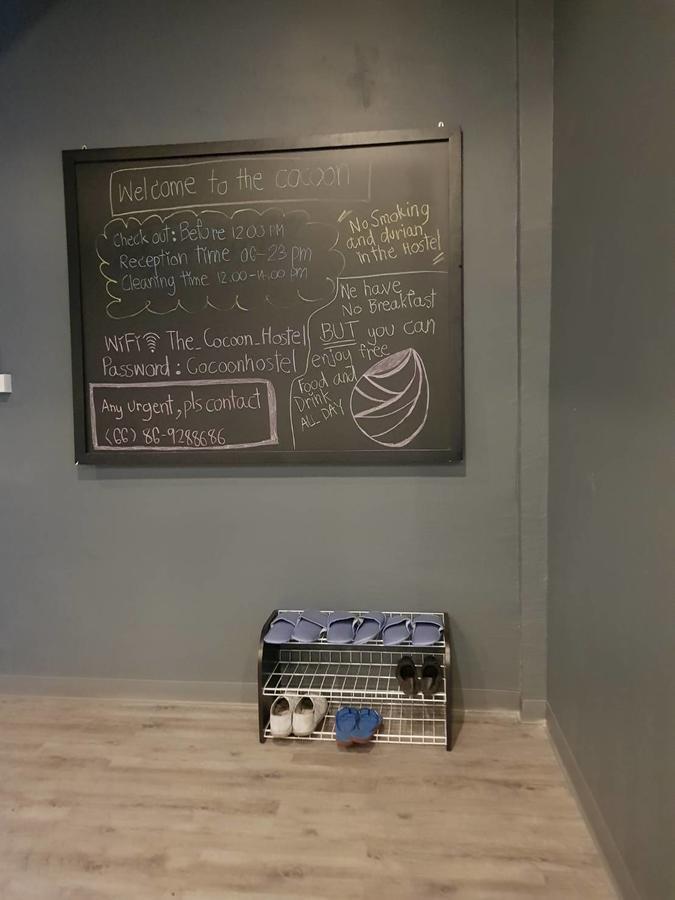 Welcome to the cocoon
Check out: Before 12:00 PM
Reception time 06-23 pm
Cleaning time 12.00-14.00 pm
WiFi The_Cocoon_Hostel
Password: Cocoonhostel
Any urgent, pls contact
(66) 86-9288686
No Smoking
and durian
in the Hostel
We have
No Breakfast
BUT you can
enjoy free
Food and
Drink
ALL DAY